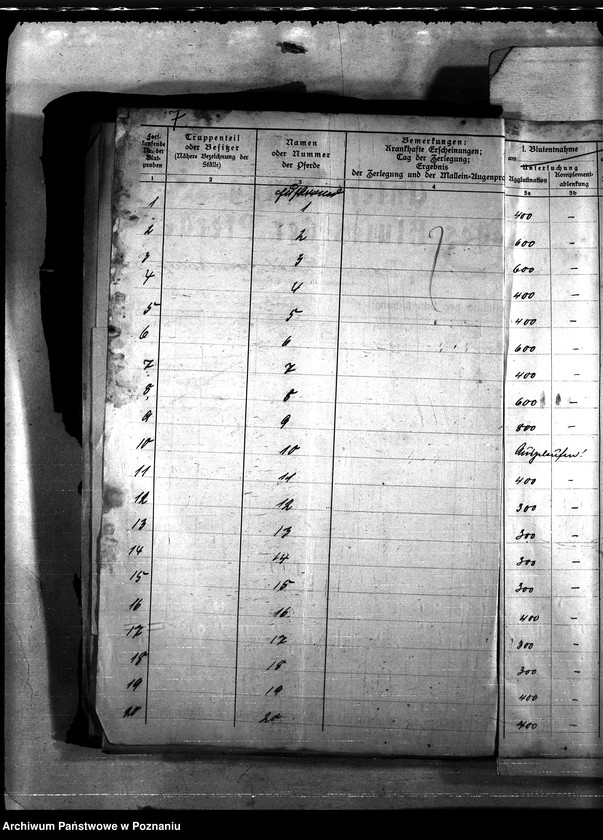 7
Fort-
laufende
Nr. der
Blut-
proben
Truppenteil
oder Besitzer
(Nähere Bezeichnung der
Ställe)
Namen
oder Nummer
der Pferde
Bemerkungen:
Krankhafte Erscheinungen;
Tag der Zerlegung;
Ergebnis
der Zerlegung und der Mallein-Augenpro
1. Blutentnahme
am
Untersuchung
Agglutination
Komplement-
ablenkung
1 2 3 4 5a 5b
1 1 400 –
2 2 600 –
3 3 600 –
4 4 400 –
5 5 400 –
6 6 600 –
7 7 400 –
8 8 600 –
9 9 800 –
10 10 Ausgelaufen!
11 11 400 –
12 12 300 –
13 13 300 –
14 14 300 –
15 15 300 –
16 16 400 –
17 17 300 –
18 18 300 –
19 19 400 –
20 20 400 –
Archiwum Państwowe w Poznaniu